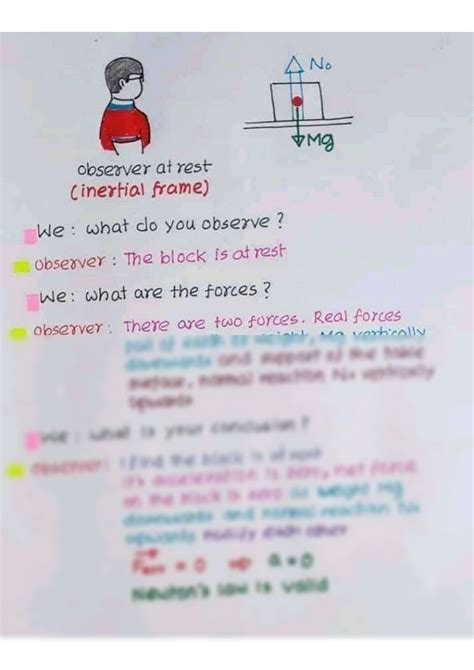 N₀
Mg
observer at rest
(inertial frame)
We : what do you observe ?
observer : The block is at rest
We : what are the forces ?
observer : There are two forces. Real forces
pull of earth or weight, Mg vertically
downwards and support of the table
surface, normal reaction N₀ vertically
upwards
We : what is your conclusion ?
observer : I find the block is at rest
it's acceleration is zero, net force
on the block is zero as weight Mg
downwards and normal reaction N₀
upwards nullify each other
= 0 ⇒ a = 0
Newton's law is valid